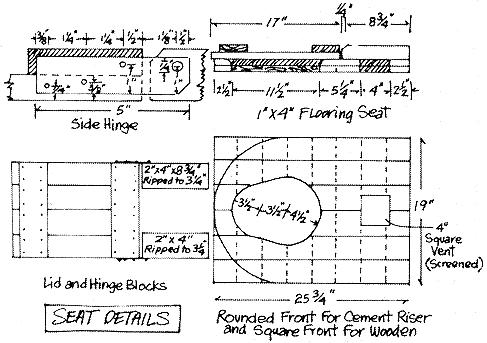 3/8" 1 1/4" 1 1/4" 1/2" 1 1/8" 1/2"
5"
Side Hinge
17" 1/4" 8 3/4"
2 1/2" 11 1/2" 5 1/4" 4" 2 1/2"
1"x4" Flooring Seat
2"x4"x8 3/4"
Ripped to 3 1/4"
2"x4"
Ripped to 3 1/4"
Lid and Hinge Blocks
3 1/2" 3 1/2" 4 1/2"
19"
4"
Square
Vent
(Screened)
25 3/4"
SEAT DETAILS
Rounded Front For Cement Riser
and Square Front For Wooden